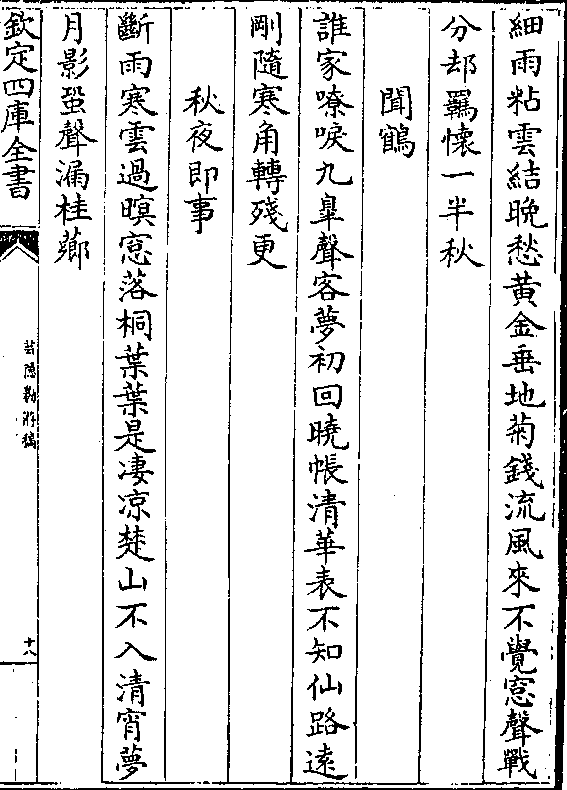 細雨粘雲結晩愁黃金垂地菊錢流風來不覺窓聲戰
分却羈懷一半秋
聞鶴
誰家嘹唳九臯聲客夢初回曉帳清華表不知仙路遠
剛隨寒角轉殘更
秋夜即事
斷雨寒雲過暝窓落桐葉葉是凄凉楚山不入清宵夢
月影蛩聲漏桂薌
欽定四庫全書
芸隱勌游稿
十八